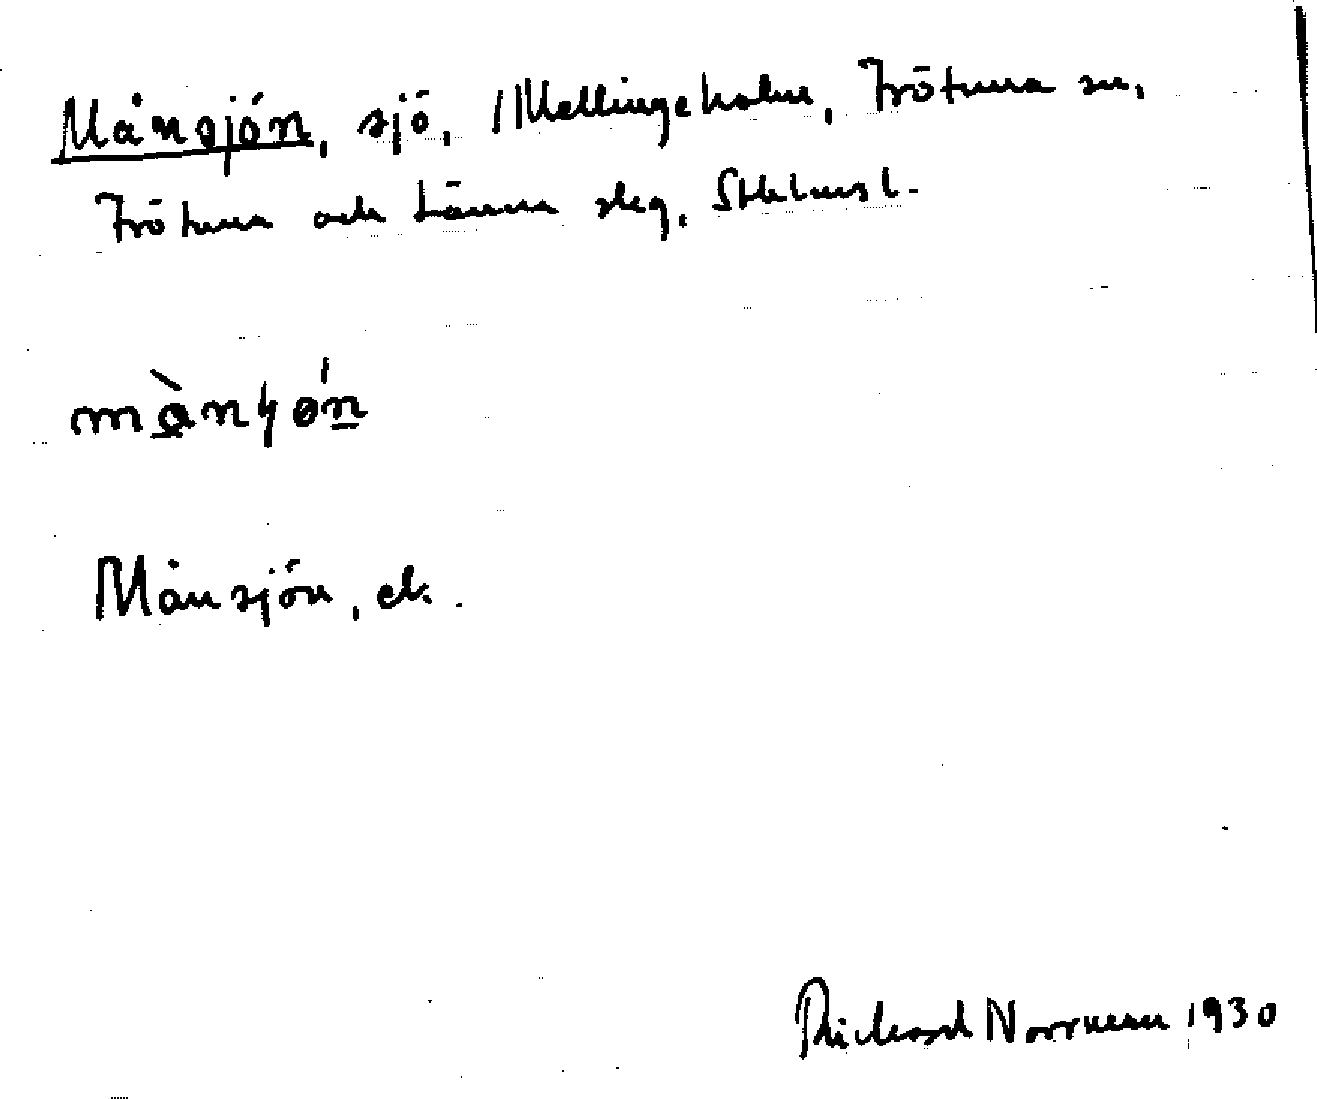 Månsjön, sjö, Mellingeholm, Frötuna sn,
Frötuna och Länna skg, Sthlms l.
mànɧǿn
Månsjön, ek.
Richard Norrman 1930